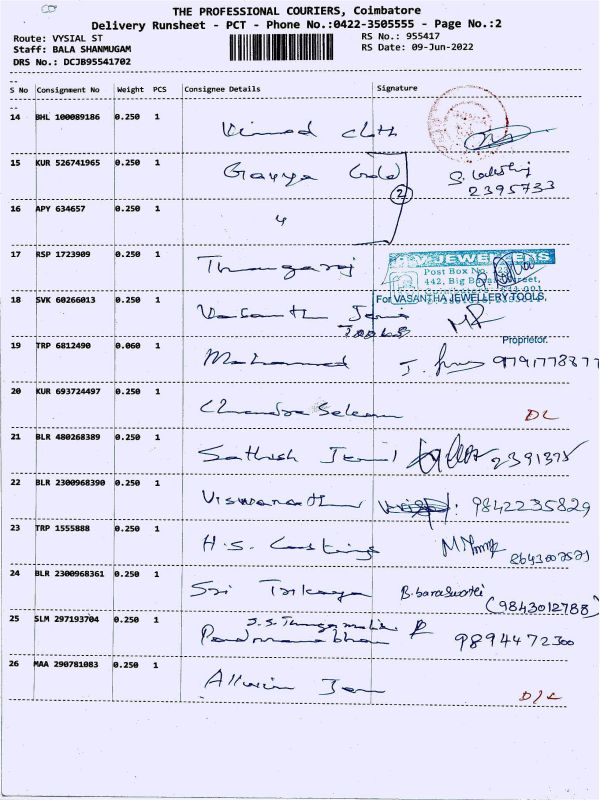 THE PROFESSIONAL COURIERS, Coimbatore
Delivery Runsheet - PCT - Phone No.:0422-3505555 - Page No.:2
Route: VYSIAL ST
RS No.: 955417
Staff: BALA SHANMUGAM
RS Date: 09-Jun-2022
DRS No.: DCJB95541702
S No Consignment No Weight PCS Consignee Details Signature
14 BHL 100089186 0.250 1 Vinod cloth
15 KUR 526741965 0.250 1 Gold
2395733
2
16 APY 634657 0.250 1 4
17 RSP 1723909 0.250 1 Thangaraj
JEWELLERS
Post Box No.
442, Big Street,
18 SVK 60266013 0.250 1 Vasanth
Tools
For VASANTHA JEWELLERY TOOLS,
Proprietor.
19 TRP 6812490 0.060 1 Mohammed
20 KUR 693724497 0.250 1 Chandra Sekaran DL
21 BLR 480268389 0.250 1 Sathish
22 BLR 2300968390 0.250 1 Viswanathan 9842235829
23 TRP 1555888 0.250 1 H.S. Casting
24 BLR 2300968361 0.250 1 Sri
(9843012788)
25 SLM 297193704 0.250 1 Padmanabhan
9894472300
26 MAA 290781083 0.250 1 Allwin D/L